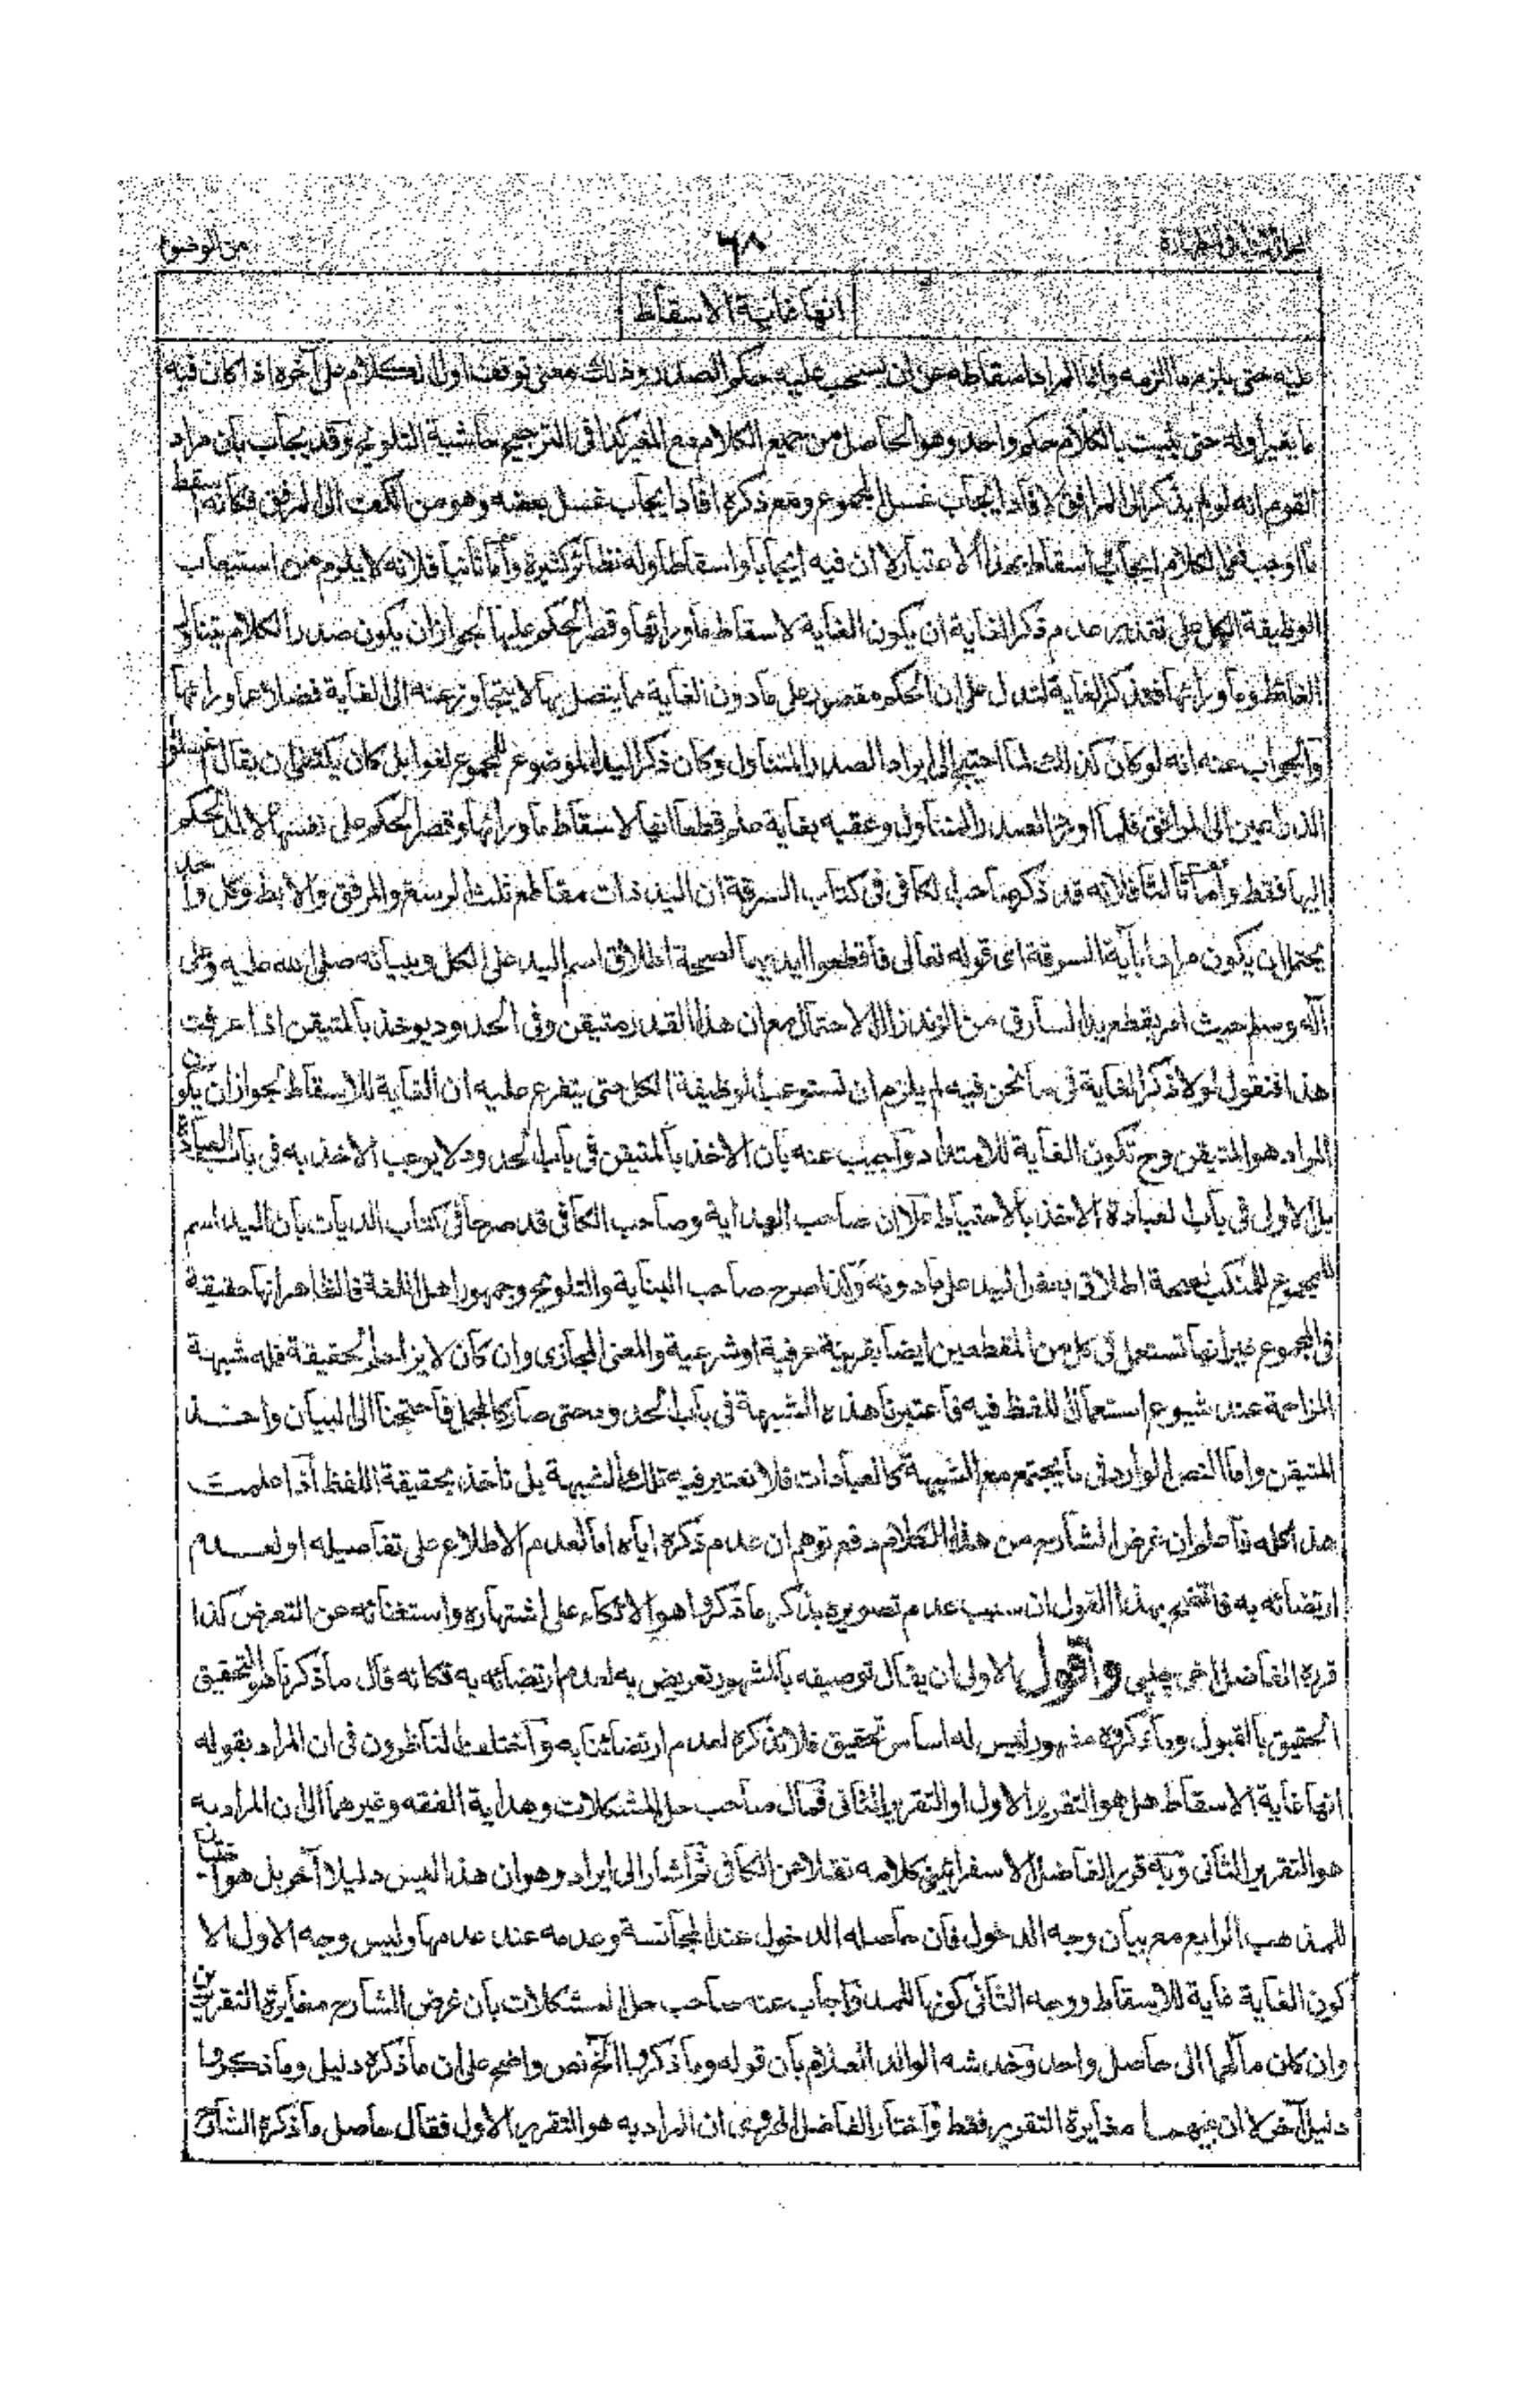 من الوضوء
٦٨
انها غاية الاسقاط
عليه حتى يلزم ما الزمه وانما المراد اسقاطه عن ان يسحب عليه حكم الصدر وذلك معنى توقف اول الكلام على آخره اذا كان فيه
ما يغير اوله حتى يثبت بالكلام حكم واحد وهو الحاصل من جميع الكلام مع المغير كذا فى الترجيح حاشية التلويح وقد يجاب بان مراد
القوم انه لو لم يذكر الى المرافق لافاد ايجاب غسل المجموع ومع ذكره افاد ايجاب غسل بعضه وهو من الكف الى المرفق فكانه اسقط
ما اوجب ففى الكلام ايجاب اسقاط بهذا الاعتبار لا ان فيه ايجابا واسقاطا وله نظائر كثيرة وأما ثانيا فلانه لا يلزم من استيعاب
الوظيفة الكل على تقدير عدم ذكر الغاية ان يكون الغاية لاسقاط ما ورائها وقصر الحكم عليها لجواز ان يكون صدر الكلام يتناول
الغاية وما ورائها فعند ذكر الغاية لتدل على ان الحكم مقصور على ما دون الغاية مما يتصل بها لا يتجاوز عنه الى الغاية فضلا عما ورائها
والجواب عنه انه لو كان كذلك لما احتيج الى ايراد الصدر المتناول وكان ذكر اليد الموضوع للمجموع لغوا بل كان يكفى ان يقال اغسلوا
الذراعين الى المرافق فلما اورد الصدر المتناول وعقبه بغاية علم قطعا انها لاسقاط ما ورائها وقصر الحكم على نفسها لا لمد الحكم
اليها فقط وأما ثالثا فلانه قد ذكر صاحب الكافى فى كتاب السرقة ان اليد ذات مقاطع ثلث الرسغ والمرفق والابط وكل واحد
يحتمل ان يكون مرادا بآية السرقة اى قوله تعالى فاقطعوا ايديهما لصحة اطلاق اسم اليد على الكل وببيانه صلى الله عليه وعلى
آله وسلم حيث امر بقطع يد السارق من الزند زال الاحتمال مع ان هذا القدر متيقن وفى الحدود يوخذ بالمتيقن اذا عرفت
هذا فنقول لولا ذكر الغاية فى ما نحن فيه لم يلزم ان تستوعب الوظيفة الكل حتى يتفرع عليه ان الغاية للاسقاط لجواز ان يكون
المراد هو المتيقن وح تكون الغاية للامتداد وأجيب عنه بان الاخذ بالمتيقن فى باب الحدود لا يوجب الاخذ به فى باب العبادة
بل الاولى فى باب العبادة الاخذ بالاحتياط علا ان صاحب الهداية وصاحب الكافى قد صرحا فى كتاب الديات بان اليد اسم
للمجموع للمنكب لصحة اطلاق بعض اليد على ما دونه وكذا صرح صاحب البناية والتلويح وجمهور اهل اللغة فالظاهر انها حقيقة
فى المجموع غير انها تستعمل فى كل من المقطعين ايضا بقرينة عرفية او شرعية والمعنى المجازى وان كان لا يزاحم الحقيقة فله شبهة
المزاحمة عند شيوع استعمال اللفظ فيه فاعتبرنا هذه الشبهة فى باب الحدود حتى صار كالمجمل فاحتجنا الى البيان واخذ
المتيقن واما النص الوارد فى ما يجتمع مع الشبهة كالعبادات فلا نعتبر فيه تلك الشبهة بل ناخذ بحقيقة اللفظ اذا علمت
هذا كله فاعلم ان غرض الشارح من هذا الكلام دفع توهم ان عدم ذكره اياه اما لعدم الاطلاع على تفاصيله او لعدم
ارتضائه به فاتضح بهذا القول ان سبب عدم تصويره بذكر ما ذكروا هو الاتكاء على اشتهاره واستغنائه عن التعرض كذا
قرره الفاضل اخى چلپى وأقول الاولى ان يقال توصيفه بالمشهور تعريض به لعدم ارتضائه به فكانه قال ما ذكرناه هو التحقيق
الحقيق بالقبول وما ذكروه مشهور ليس له اساس تحقيق فلا نذكره لعدم ارتضائنا به وأختلف الناظرون فى ان المراد بقوله
انها غاية الاسقاط هل هو التقرير الاول او التقرير الثانى فمال صاحب حل المشكلات وهداية الفقه وغيرهما الى ان المراد به
هو التقرير الثانى وبه قرر الفاضل الاسفرائنى كلامه نقلا عن الكافى ثم أشار الى ايراد وهو ان هذا ليس دليلا آخر بل هو اختيار
للمذهب الرابع مع بيان وجه الدخول فان حاصله الدخول عند المجانسة وعدمه عند عدمها وليس وجه الاول الا
كون الغاية غاية للاسقاط ووجه الثانى كونها للمد وأجاب عنه صاحب حل المشكلات بان غرض الشارح مغايرة التقريرين
وان كان مآلهما الى حاصل واحد وخدشه الوالد العلام بان قوله وما ذكروا الخ نص واضح على ان ما ذكره دليل وما ذكروا
دليل آخر لا ان بينهما مغايرة التقرير فقط وأختار الفاضل الهروى ان المراد به هو التقرير الاول فقال حاصل ما ذكره الشارح